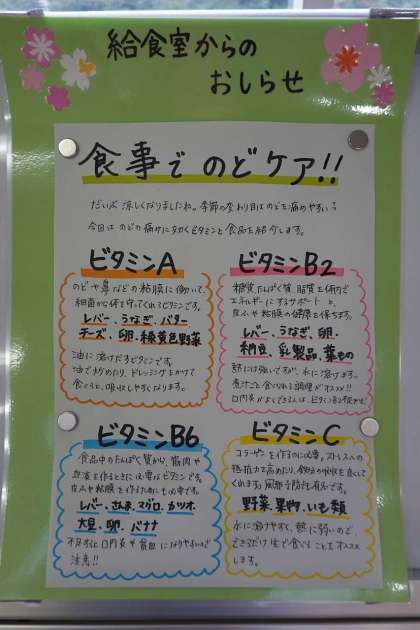 給食室からの
おしらせ
食事で のどケア!!
だいぶ 涼しくなりましたね。季節の変わり目はのどを痛めやすい
今回は のどの痛みに効くビタミンと食品を紹介します。
ビタミンA
のどや鼻などの粘膜に働いて、
細菌から体を守ってくれるビタミンです。
レバー、うなぎ、バター
チーズ、卵、緑黄色野菜
油に溶けるビタミンです。
油で炒めたり、ドレッシングをかけて
食べると、吸収しやすくなります。
ビタミンB2
糖質、たんぱく質、脂質を体内で
エネルギーにするサポートと、
皮ふや粘膜の健康を保ちます。
レバー、うなぎ、卵、
納豆、乳製品、葉もの
熱には強いですが、水に溶けます。
煮汁ごと食べれる調理がオススメ!!
口内炎がよくできる人は、ビタミンB2
ビタミンB6
食品中のたんぱく質から、筋肉や
血液を作るときに必要なビタミンです。
皮ふや粘膜を作るためにも必要です。
レバー、さんま、マグロ、カツオ、
大豆、卵、バナナ
不足すると口内炎や貧血になりやすいので
注意!!
ビタミンC
コラーゲンを作るのに必要。ストレスへの
抵抗力を高めたり、鉄分の吸収を良くして
くれます。風邪予防にも有効です。
野菜、果物、いも類
水に溶けやすく、熱に弱いので、
できるだけ生で食べることをオススメ
します。